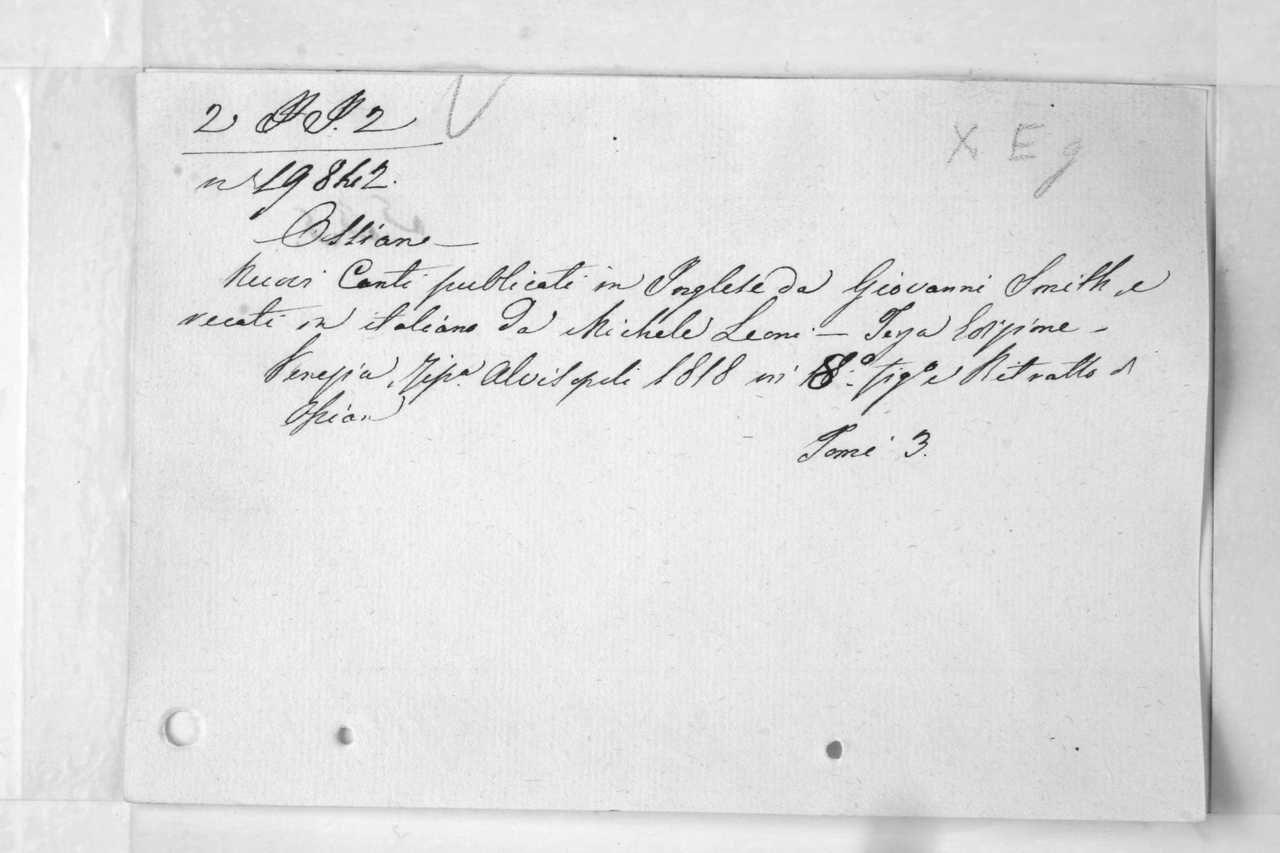 2 PP. 2
X E g
n 19842.
Ossian
Nuovi Canti publicati in Inglese da Giovanni Smith, e
recati in italiano da Michele Leoni - Terza Edizione -
Venezia, Tip.a Alvisopoli 1818 in 8.o fig.o e Ritratto di
Ossian
Tomi 3.